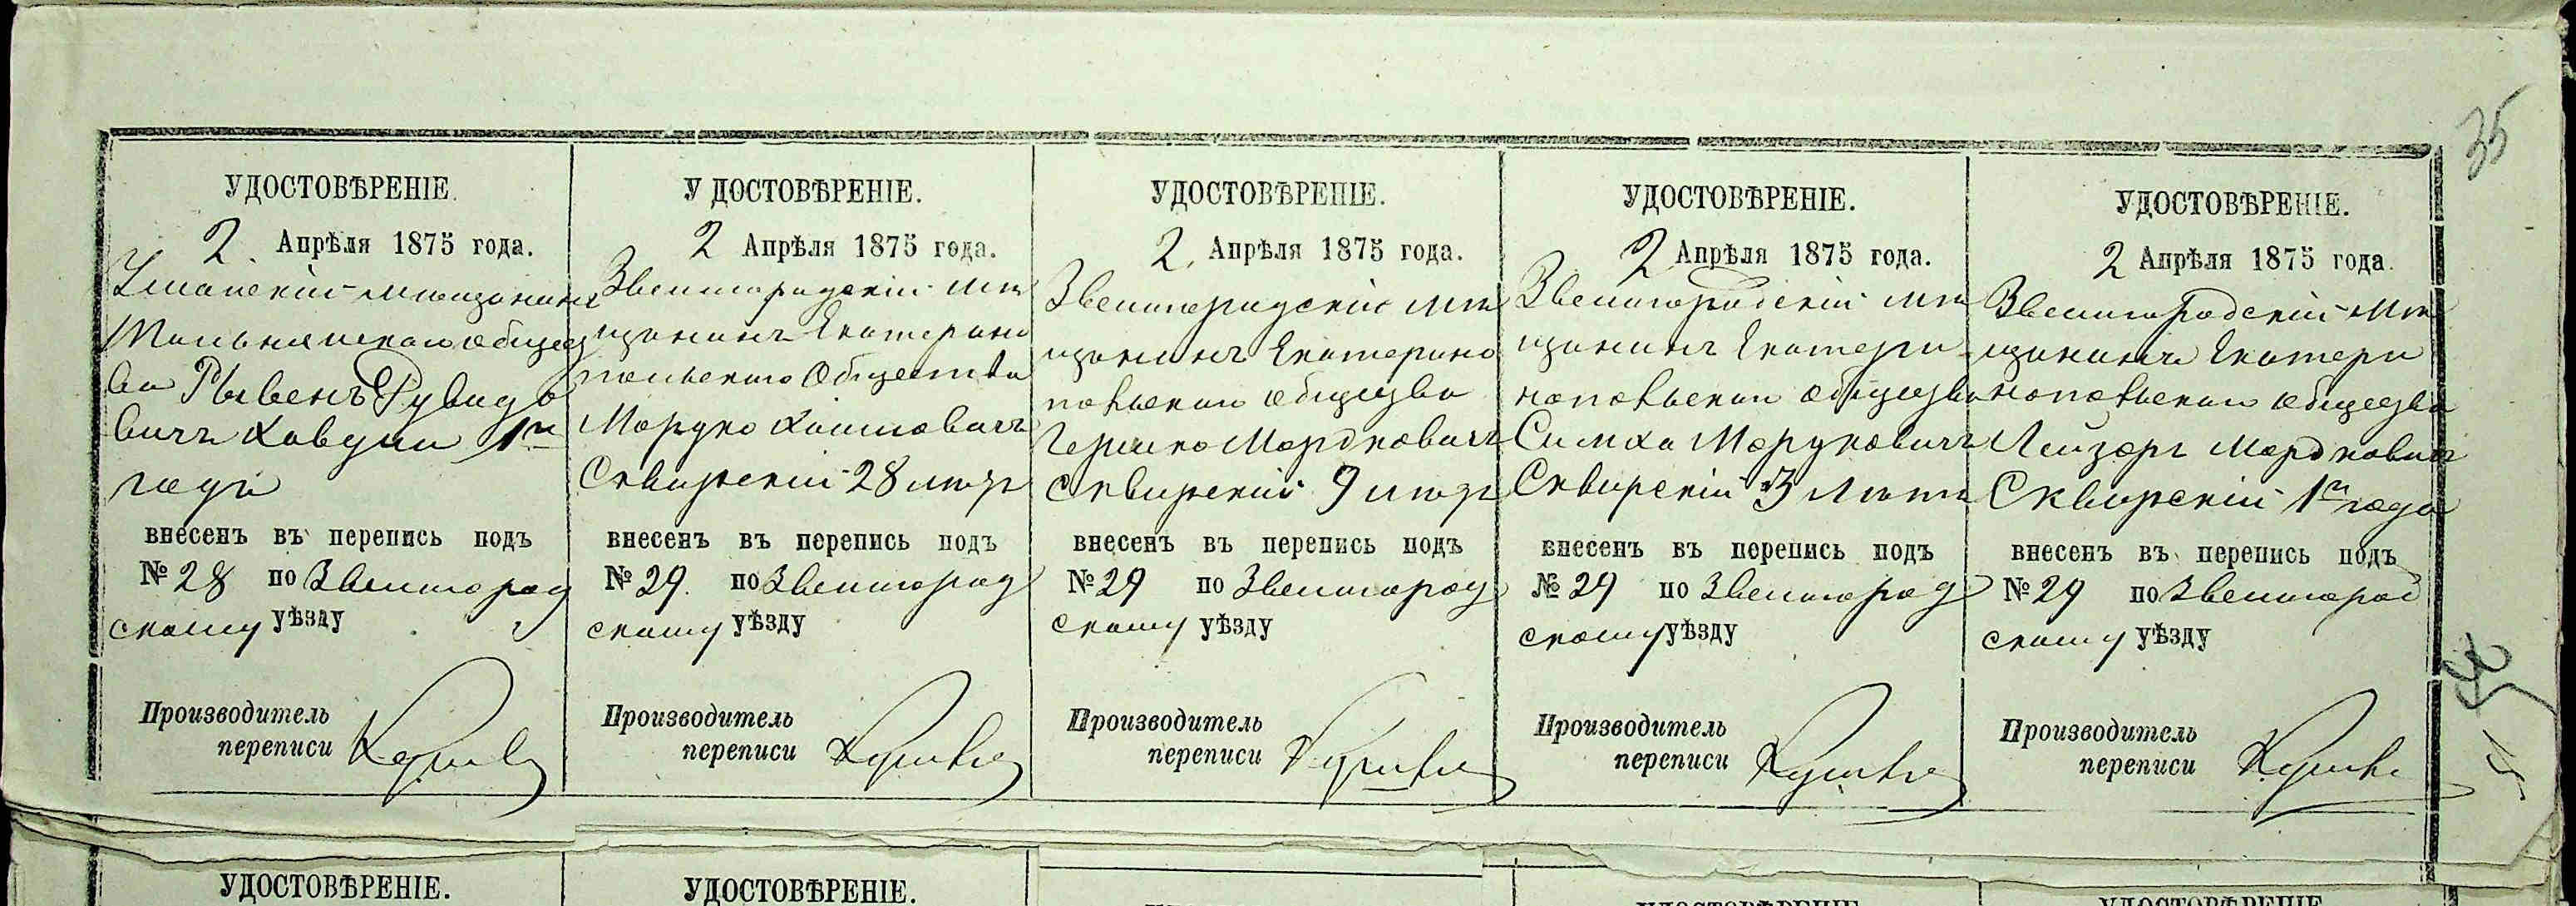 35
УДОСТОВѢРЕНІЕ.
2 Апрѣля 1875 года.
Уманскій мѣщанинъ
общес
ва Рувидо
вичъ 1го
года
внесенъ въ перепись подъ
№ 28 по Звенигород
скому уѣзду
Производитель
переписи
УДОСТОВѢРЕНІЕ.
2 Апрѣля 1875 года.
Звенигородскій мѣ
щанинъ Екатерино
польскаго Общества
Мордко Хаимовичъ
Сквирскій 28 лѣтъ
внесенъ въ перепись подъ
№ 29. по Звенигород
скому уѣзду
Производитель
переписи
УДОСТОВѢРЕНІЕ.
2 Апрѣля 1875 года.
Звенигородскій мѣ
щанинъ Екатерино
польскаго общества
Гершко Мордковичъ
Сквирскій 9 лѣтъ
внесенъ въ перепись подъ
№ 29 по Звенигород
скому уѣзду
Производитель
переписи
УДОСТОВѢРЕНІЕ.
2 Апрѣля 1875 года.
Звенигородскій мѣ
щанинъ Екатери
нопольскаго общества
Симха Мордковичъ
Сквирскій 3 лѣтъ
внесенъ въ перепись подъ
№ 29 по Звенигород
скому уѣзду
Производитель
переписи
УДОСТОВѢРЕНІЕ.
2 Апрѣля 1875 года.
Звенигородскій мѣ
щанинъ Екатери
нопольскаго общества
Лейзоръ Мордковичъ
Сквирскій 1го года
внесенъ въ перепись подъ
№ 29 по Звенигород
скому уѣзду
Производитель
переписи
УДОСТОВѢРЕНІЕ.
УДОСТОВѢРЕНІЕ.
УДОСТОВѢРЕНІЕ
УДОСТОВѢРЕНІЕ